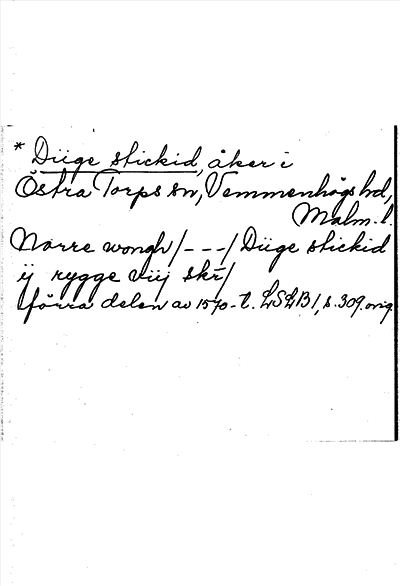 * Düge stickid, åker i
Östra Torps sn, Vemmenhögs hd,
Malm. l.
Norre wongh/---/Düge stickid
ij rygge viij skr/
förra delen av 1570-t. LSLB 1, s. 309. orig.